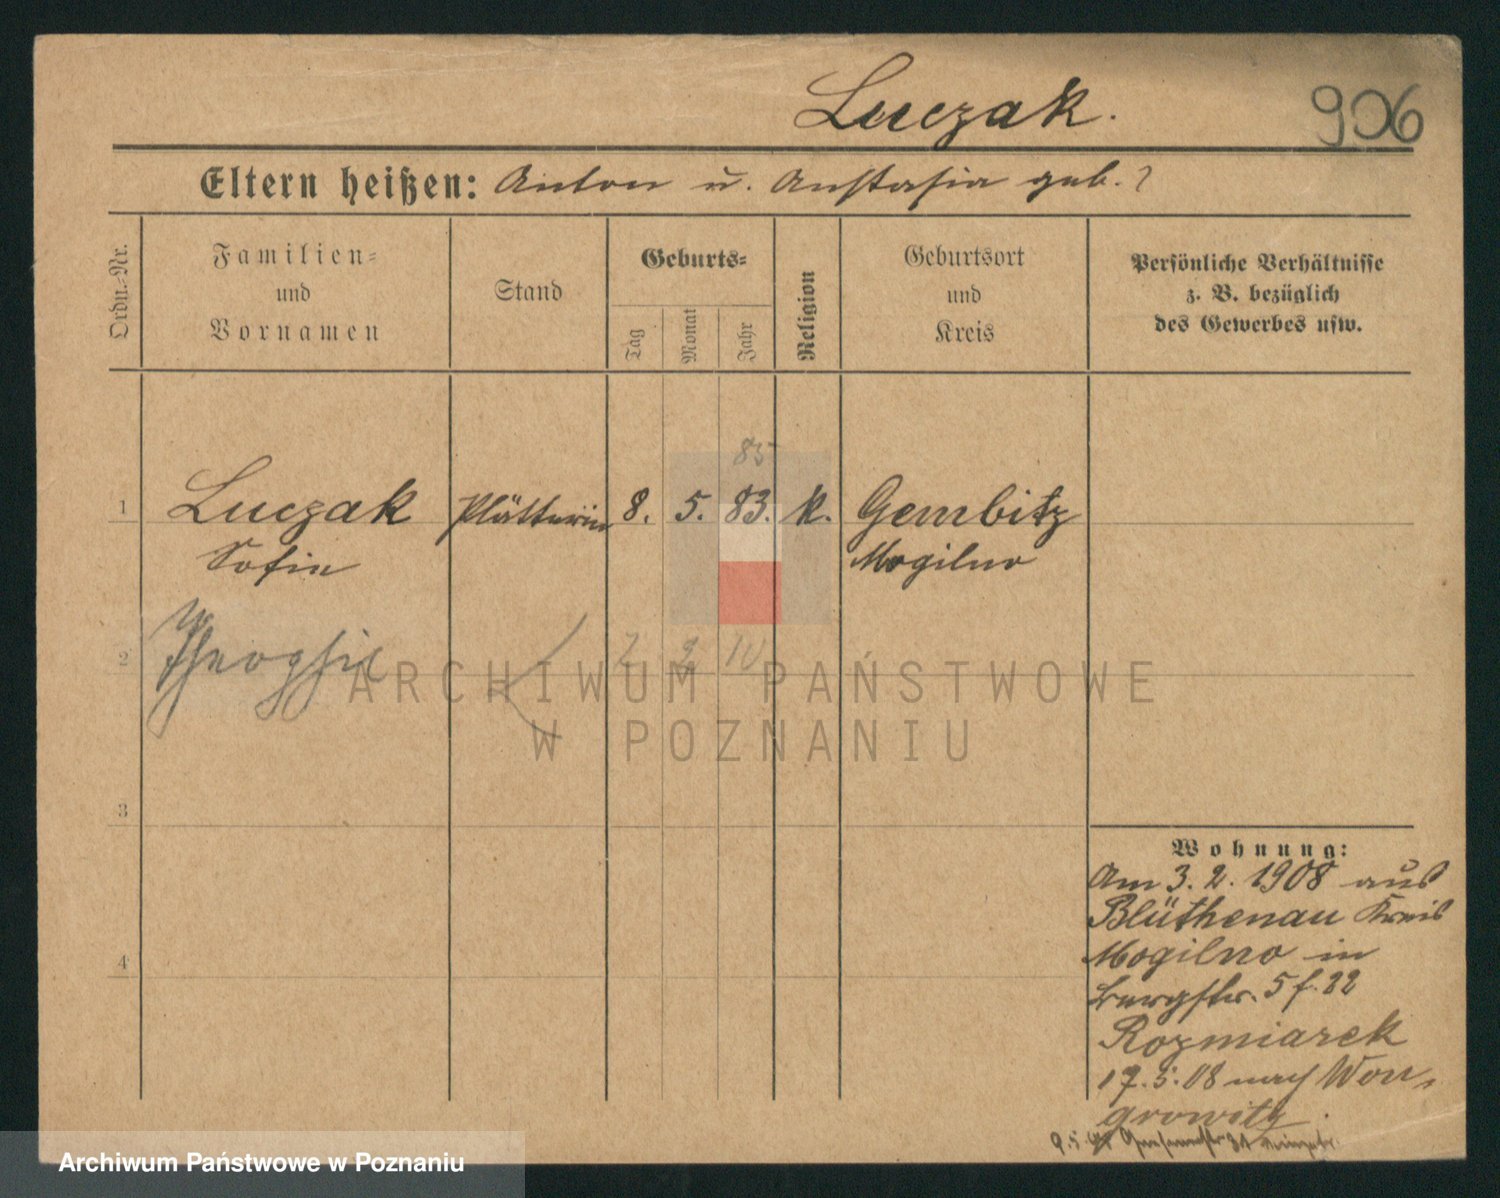 Luczak.
906
Eltern heißen: Anton u. Anstasia geb. ?
Ordn.-Nr.
Familien-
und
Vornamen
Stand
Geburts-
Tag
Monat
Jahr
Religion
Geburtsort
und
Kreis
Persönliche Verhältnisse
z. B. bezüglich
des Gewerbes usw.
85
1 Luczak Plätterin 8. 5. 83. k. Gembitz
Sofie Mogilno
2 2 10
3
4
ARCHIWUM PAŃSTWOWE
W POZNANIU
Wohnung:
Am 3. 2. 1908 aus
Blüthenau Kreis
Mogilno in
Bergstr. 5 f. 22
Rozmiarek
17. 5. 08 nach Won-
growitz.
9. 5.
Archiwum Państwowe w Poznaniu